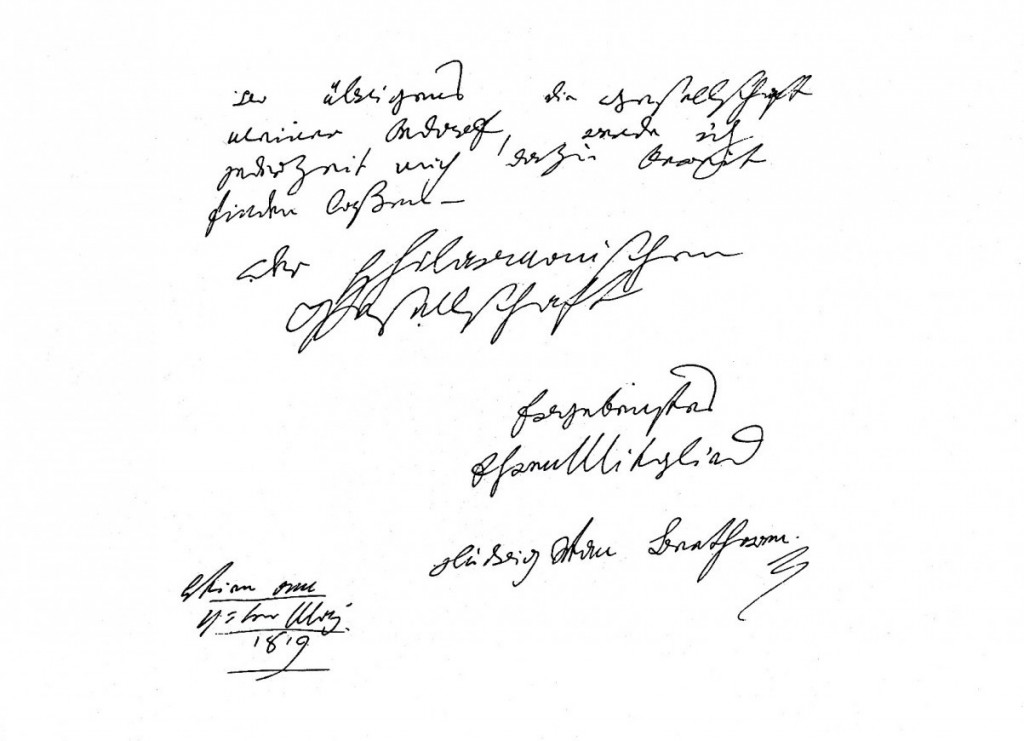 übrigens die Gesellschaft
meiner bedarf, werde ich
jederzeit mich dazu bereit
finden laßen –
der philarmonischen
Gesellschaft
Ergebenster
EhrenMitglied
Ludwig van Beethoven.
Wien am
4=ten May
1819